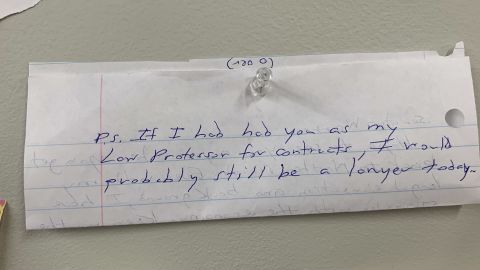 (over)
P.s. If I had had you as my
Law Professor for contracts, I would
probably still be a lawyer today.